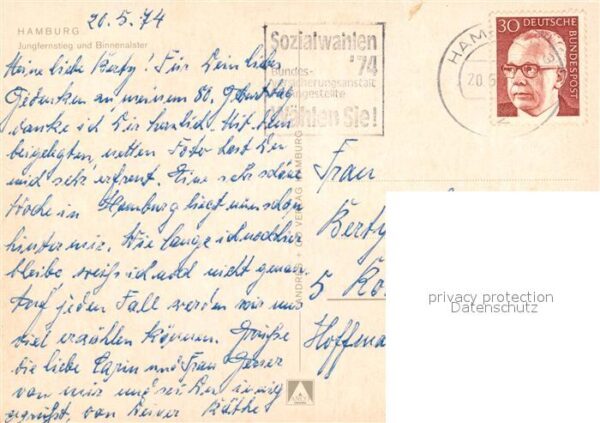 20.5.74
HAMBURG
Jungfernstieg und Binnenalster
Meine liebe Berty! Für Dein liebes
Gedenken an meinem 80. Geburtstag
danke ich Dir herzlich. Mit dem
beigelegten, netten Foto hast Du
mich sehr erfreut. Eine sehr schöne
Woche in Hamburg liegt nun schon
hinter mir. Wie lange ich noch hier
bleibe, weiß ich noch nicht genau.
Auf jeden Fall werden wir uns
viel erzählen können. Grüße
die liebe und Frau
von mir und sei Du innig
gegrüßt, von Deiner Käthe
Sozialwahlen
'74
Bundes-
versicherungsanstalt
Angestellte
Wählen Sie!
HAM
20.5
30 DEUTSCHE
BUNDESPOST
ANDRES + CO VERLAG HAMBURG
Frau
Berty
5 Kö
Hoffma
privacy protection
Datenschutz